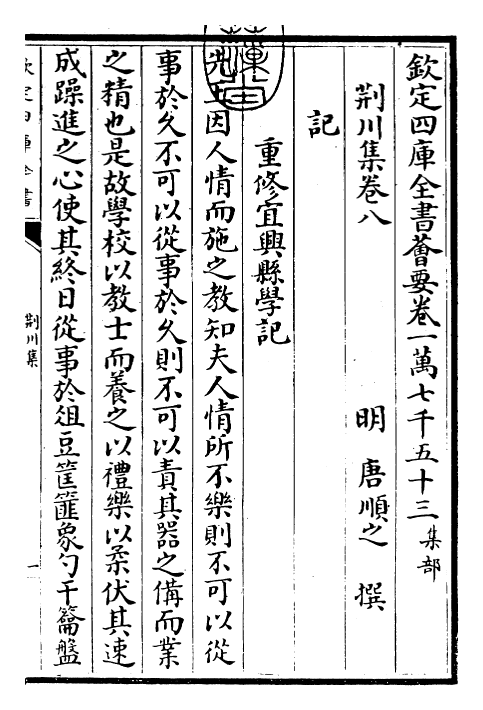 欽定四庫全書薈要卷一萬七千五十三集部
荆川集卷八
明 唐順之 撰
記
重修宜興縣學記
先王因人情而施之教知夫人情所不樂則不可以從
事於久不可以從事於久則不可以責其器之備而業
之精也是故學校以教士而養之以禮樂以柔伏其速
成躁進之心使其終日從事於俎豆筐篚象勺干籥盤
欽定四庫全書
荆川集
一